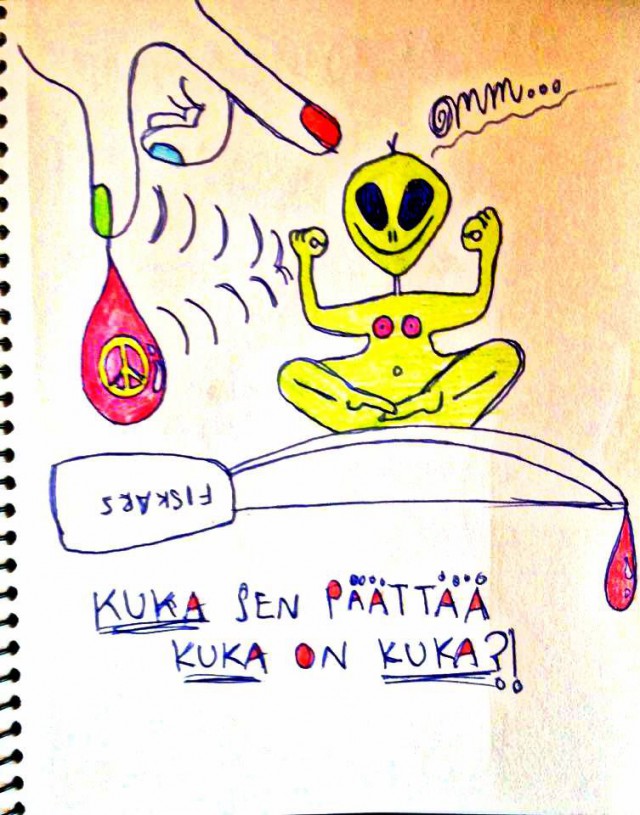 omm...
FISKARS
KUKA SEN PÄÄTTÄÄ
KUKA ON KUKA?!